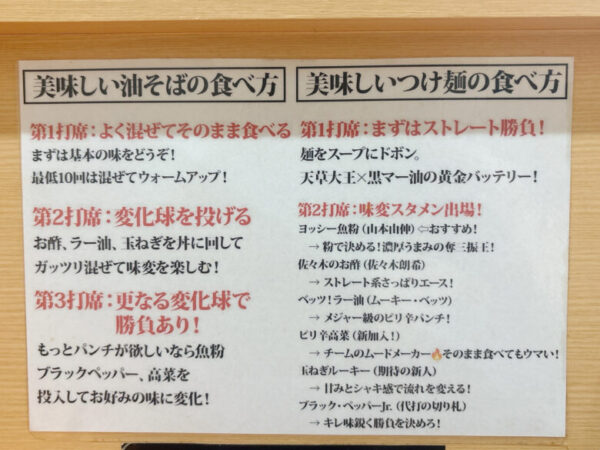 美味しい油そばの食べ方
第1打席：よく混ぜてそのまま食べる
まずは基本の味をどうぞ！
最低10回は混ぜてウォームアップ！
第2打席：変化球を投げる
お酢、ラー油、玉ねぎを丼に回して
ガッツリ混ぜて味変を楽しむ！
第3打席：更なる変化球で
勝負あり！
もっとパンチが欲しいなら魚粉
ブラックペッパー、高菜を
投入してお好みの味に変化！
美味しいつけ麺の食べ方
第1打席：まずはストレート勝負！
麺をスープにドボン。
天草大王×黒マー油の黄金バッテリー！
第2打席：味変スタメン出場！
ヨッシー魚粉（山本由伸）⇦おすすめ！
→ 粉で決める！濃厚うまみの奪三振王！
佐々木のお酢（佐々木朗希）
→ ストレート系さっぱりエース！
ベッツ！ラー油（ムーキー・ベッツ）
→ メジャー級のピリ辛パンチ！
ピリ辛高菜（新加入！）
→ チームのムードメーカー🔥そのまま食べてもウマい！
玉ねぎルーキー（期待の新人）
→ 甘みとシャキ感で流れを変える！
ブラック・ペッパーJr.（代打の切り札）
→ キレ味鋭く勝負を決めろ！